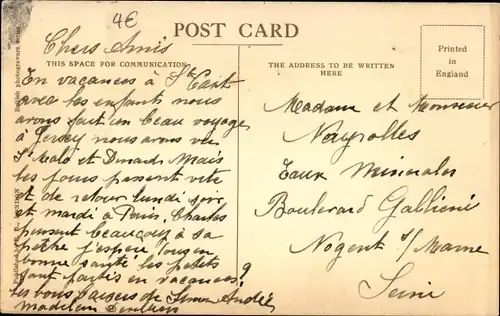 4€
POST CARD
THIS SPACE FOR COMMUNICATION
THE ADDRESS TO BE WRITTEN
HERE
Printed
in
England
Chers Amis
En vacances à St Cast
avec les enfants nous
avons fait un beau voyage
à Jersey nous avons vu
St Malo et Dinard Mais
les jours passent vite
et de retour lundi soir
et mardi à Paris. Charles
pensent beaucoup à sa
pêche j'espère tous en
bonne santé les petits
sont partis en vacances?
les bons baisers de Simon André
Madeleine
Madame et Monsieur
Nayrolles
Eaux Minerales
Boulevard Gallieni
Nogent s/ Marne
Seine
British photogravure series
LONDON